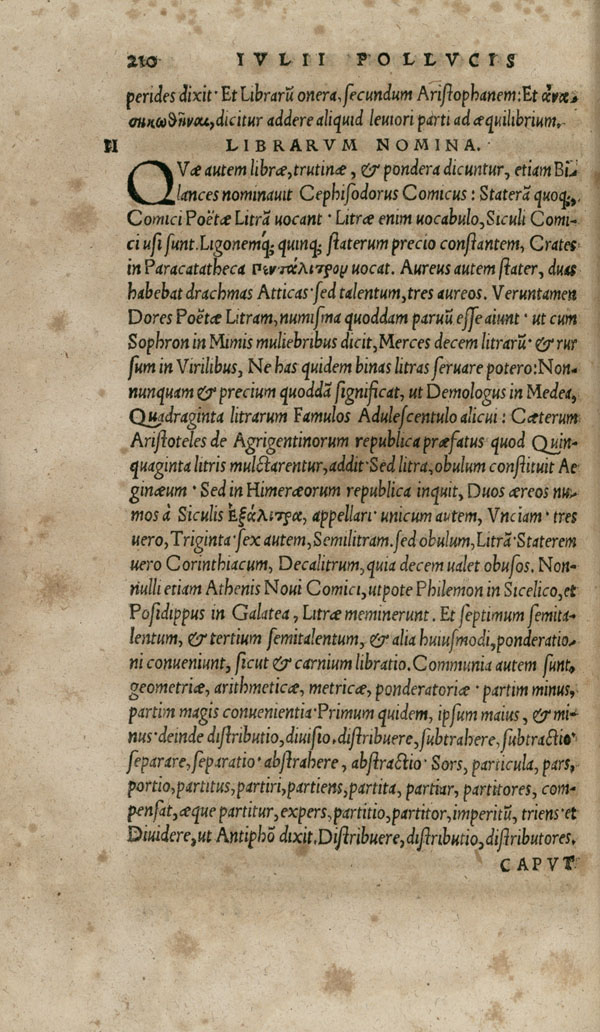 210 IVLII POLLVCIS
perides dixit· Et Librarũ onera, secundum Aristophanem: Et ἀνα-
σηκωθῆναι, dicitur addere aliquid leuiori parti ad æquilibrium.
II LIBRARVM NOMINA.
QVæ autem libræ, trutinæ, & pondera dicuntur, etiam Bi-
lances nominauit Cephisodorus Comicus: Staterã quoq;,
Comici Poëtæ Litrã uocant· Litræ enim uocabulo, Siculi Comi-
ci usi sunt. Ligonemq́; quinq; staterum precio constantem, Crates
in Paracatatheca πεντάλιτρον uocat. Aureus autem stater, duas
habebat drachmas Atticas· sed talentum, tres aureos. Veruntamen
Dores Poëtæ Litram, numisma quoddam paruũ esse aiunt· ut cum
Sophron in Mimis muliebribus dicit, Merces decem litrarũ· & rur
sum in Virilibus, Ne has quidem binas litras seruare potero: Non-
nunquam & precium quoddã significat, ut Demologus in Medea,
Quadraginta litrarum Famulos Adulescentulo alicui: Cæterum
Aristoteles de Agrigentinorum republica præfatus quod Quin-
quaginta litris mulctarentur, addit· Sed litra, obulum constituit Ae
ginæum· Sed in Himeræorum republica inquit, Duos æreos nu-
mos à Siculis Ἑξάλιτρα, appellari· unicum autem, Vnciam· tres
uero, Triginta· sex autem, Semilitram. sed obulum, Litrã· Staterem
uero Corinthiacum, Decalitrum, quia decem ualet obusos. Non-
nulli etiam Athenis Noui Comici, utpote Philemon in Sicelico, et
Posidippus in Galatea, Litræ meminerunt. Et septimum semita-
lentum, & tertium semitalentum, & alia huiusmodi, ponderatio-
ni conueniunt, sicut & carnium libratio. Communia autem sunt,
geometriæ, arithmeticæ, metricæ, ponderatoriæ· partim minus,
partim magis conuenientia· Primum quidem, ipsum maius, & mi-
nus· deinde distributio, diuisio. distribuere, subtrahere, subtractio·
separare, separatio· abstrahere, abstractio· Sors, particula, pars,
portio, partitus, partiri, partiens, partita, partiar, partitores, com-
pensat, æque partitur, expers, partitio, partitor, imperitũ, triens· et
Diuidere, ut Antiphõ dixit. Distribuere, distributio, distributores.
CAPVT